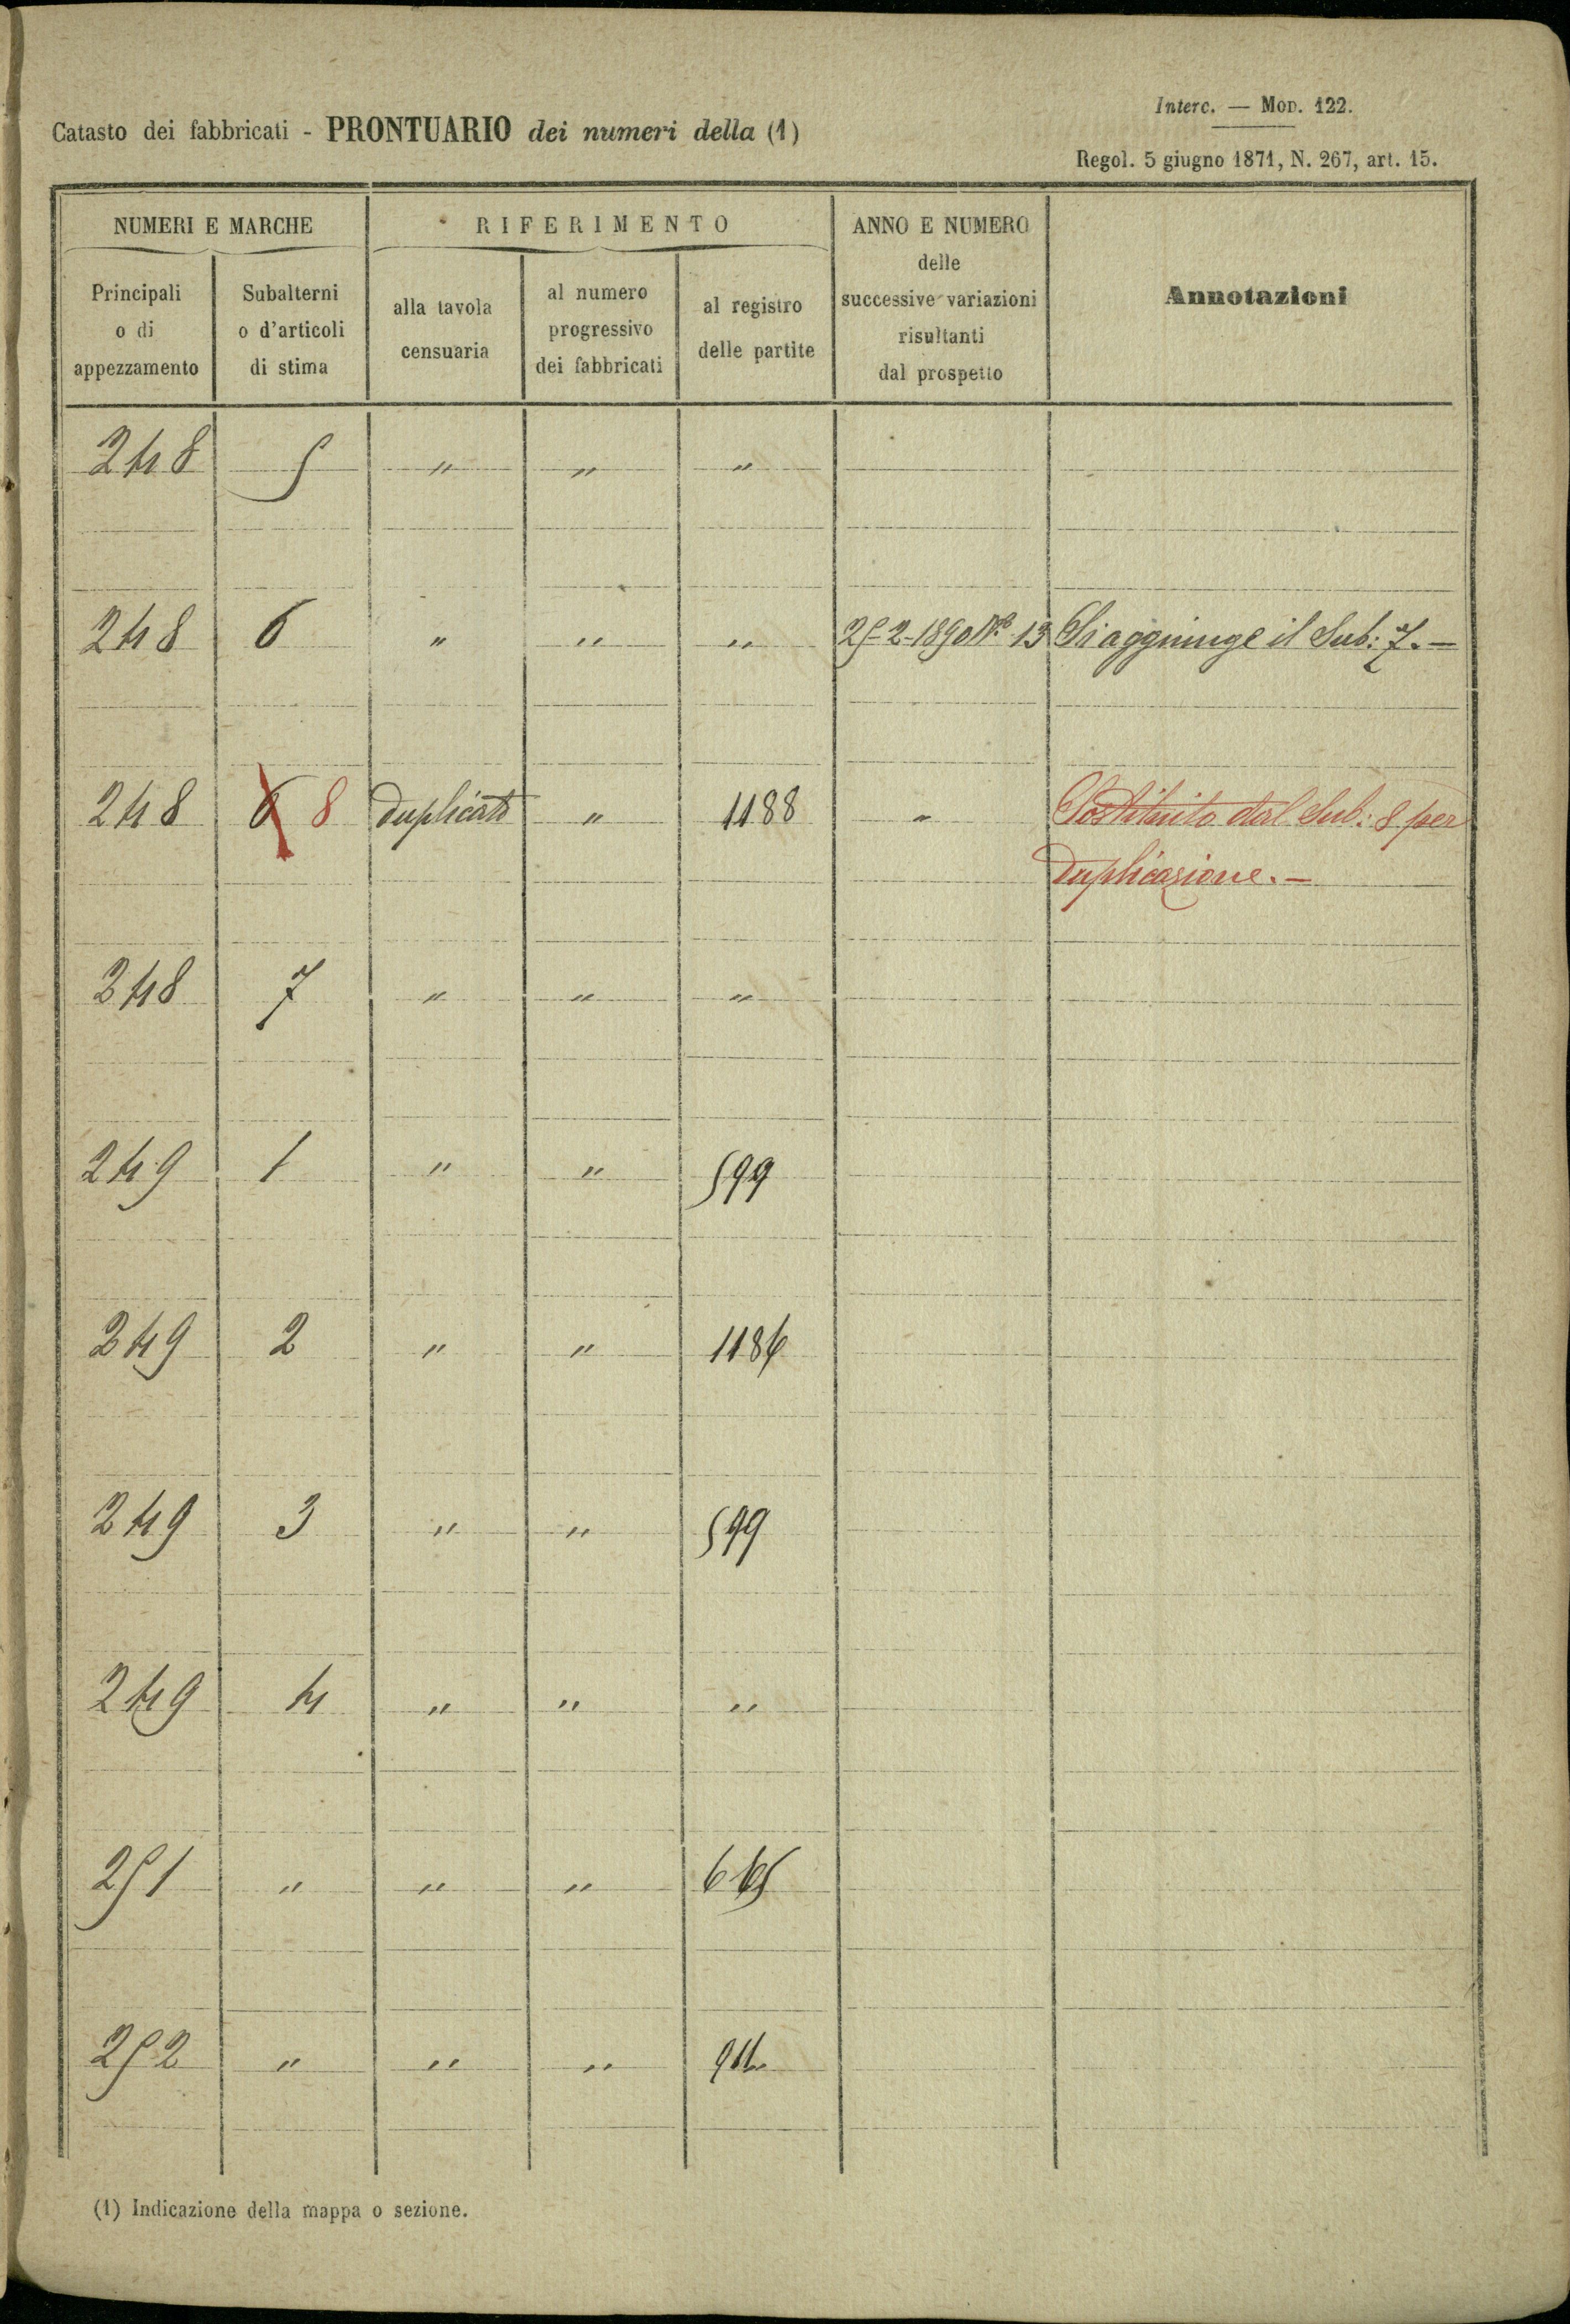 Interc. — Mod. 122.
Catasto dei fabbricati - PRONTUARIO dei numeri della (1)
Regol. 5 giugno 1871, N. 267, art. 15.
NUMERI E MARCHE
Principali
o di
appezzamento
Subalterni
o d'articoli
di stima
RIFERIMENTO
alla tavola
censuaria
al numero
progressivo
dei fabbricati
al registro
delle partite
ANNO E NUMERO
delle
successive variazioni
risultanti
dal prospetto
Annotazioni
248 5 " " "
248 6 " " " 25-2-1890 No 13 Si aggiunge il Sub: 7. —
248 6 8 duplicato " 1188 " Sostituito dal Sub: 8 per
duplicazione. —
248 7 " " "
249 1 " " 599
249 2 " " 1186
249 3 " " 599
249 4 " " "
251 " " " 665
252 " " "
(1) Indicazione della mappa o sezione.